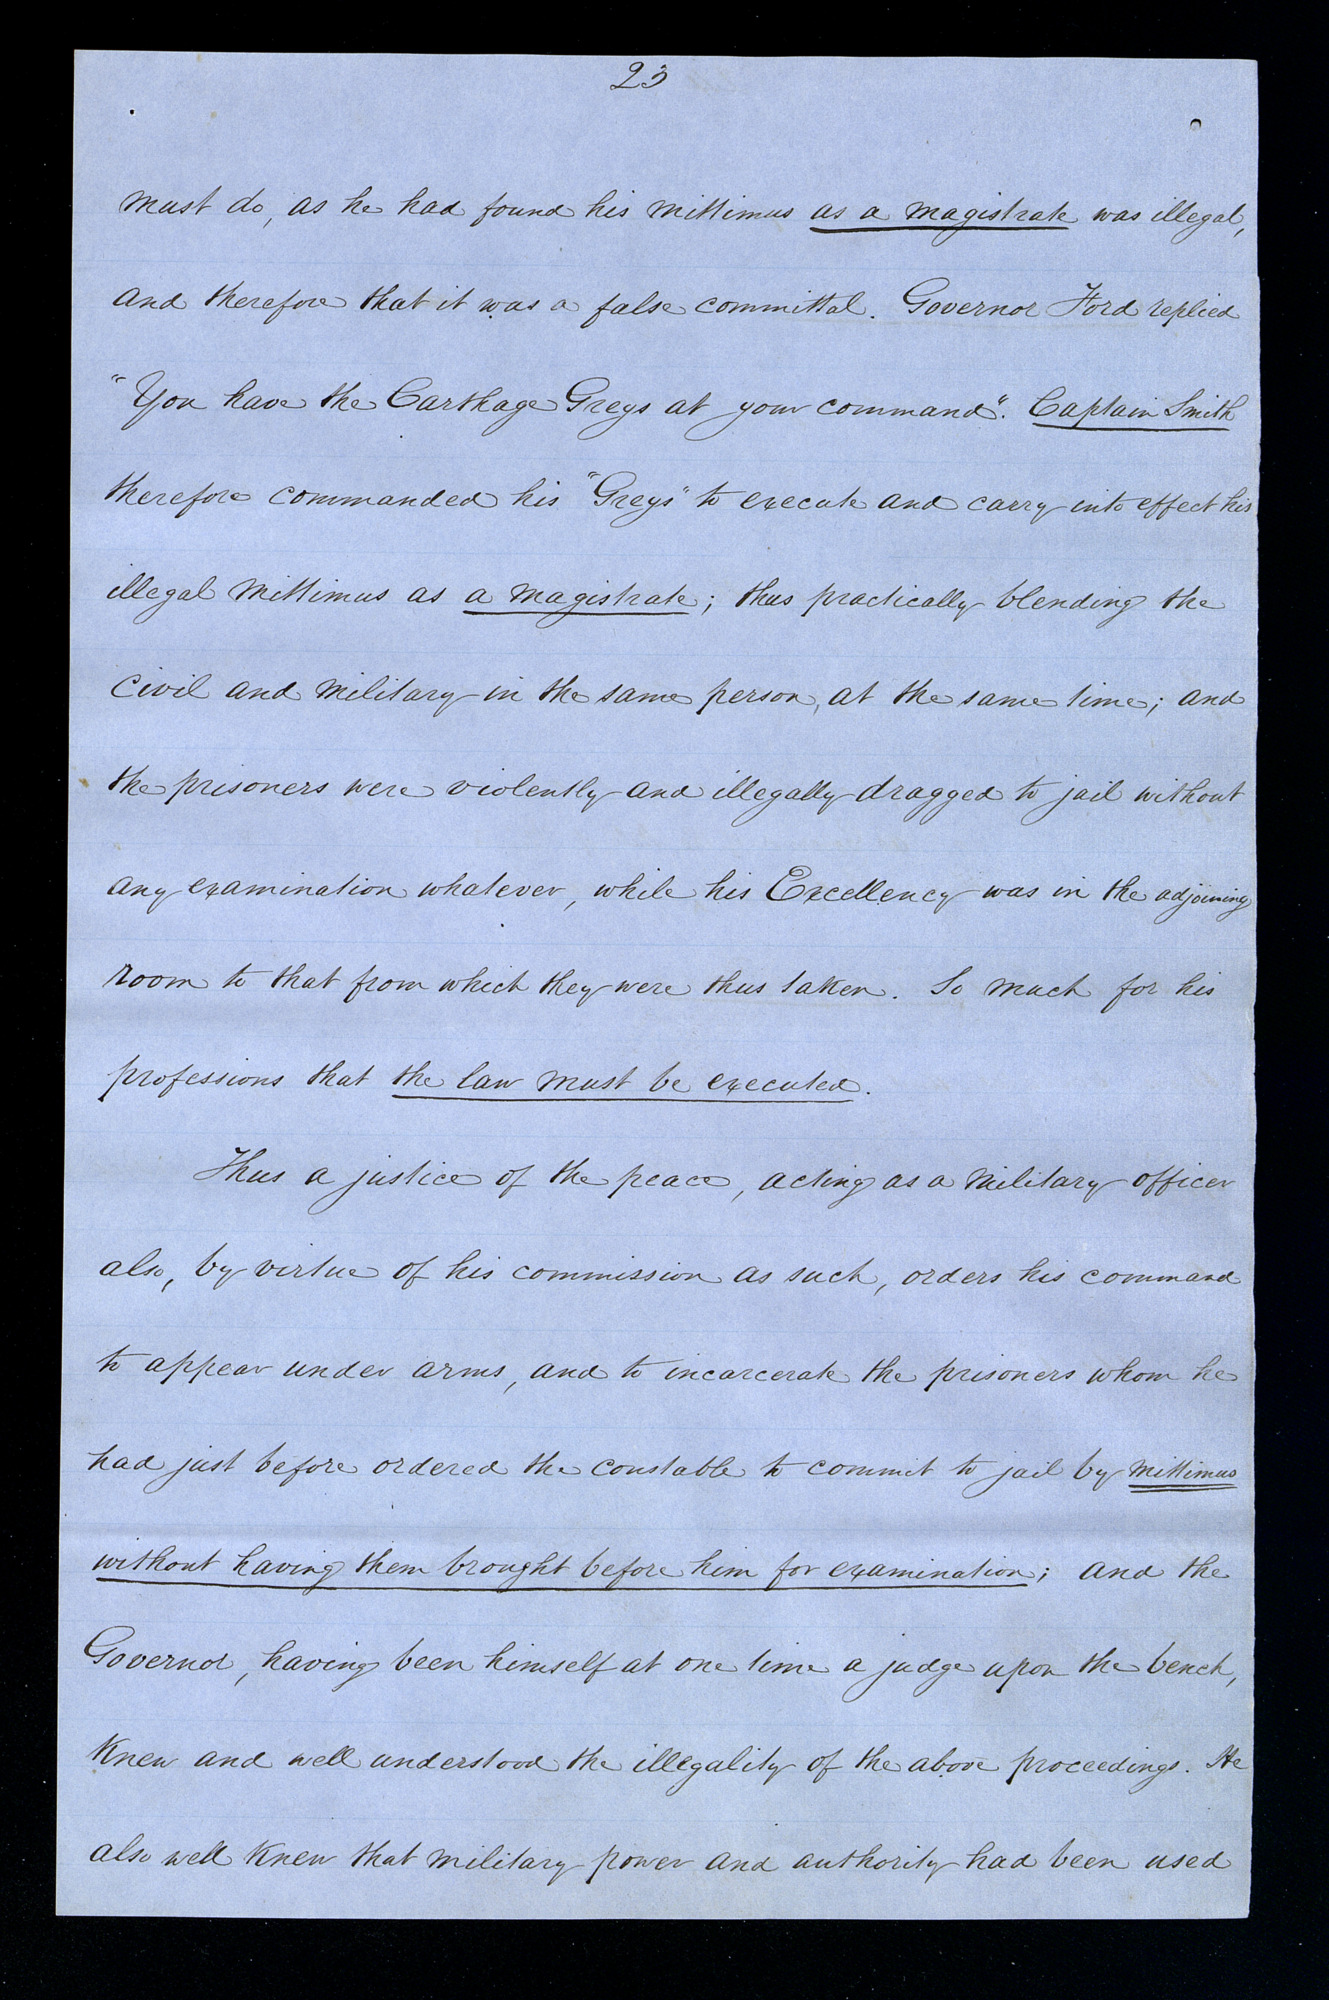 23
must do, as he had found his mittimus as a magistrate was illegal,
and therefore that it was a false committal. Governor Ford replied
"You have the Carthage Greys at your command". Captain Smith
therefore commanded his "Greys" to execute and carry into effect his
illegal mittimus as a magistrate; thus practically blending the
civil and military in the same person, at the same time; and
the prisoners were violently and illegally dragged to jail without
any examination whatever, while his Excellency was in the adjoining
room to that from which they were thus taken. So much for his
professions that the law must be executed.
Thus a justice of the peace, acting as a military officer
also, by virtue of his commission as such, orders his command
to appear under arms, and to incarcerate the prisoners whom he
had just before ordered the constable to commit to jail by mittimus
without having them brought before him for examination; and the
Governor, having been himself at one time a judge upon the bench,
knew and well understood the illegality of the above proceedings. He
also well knew that military power and authority had been used